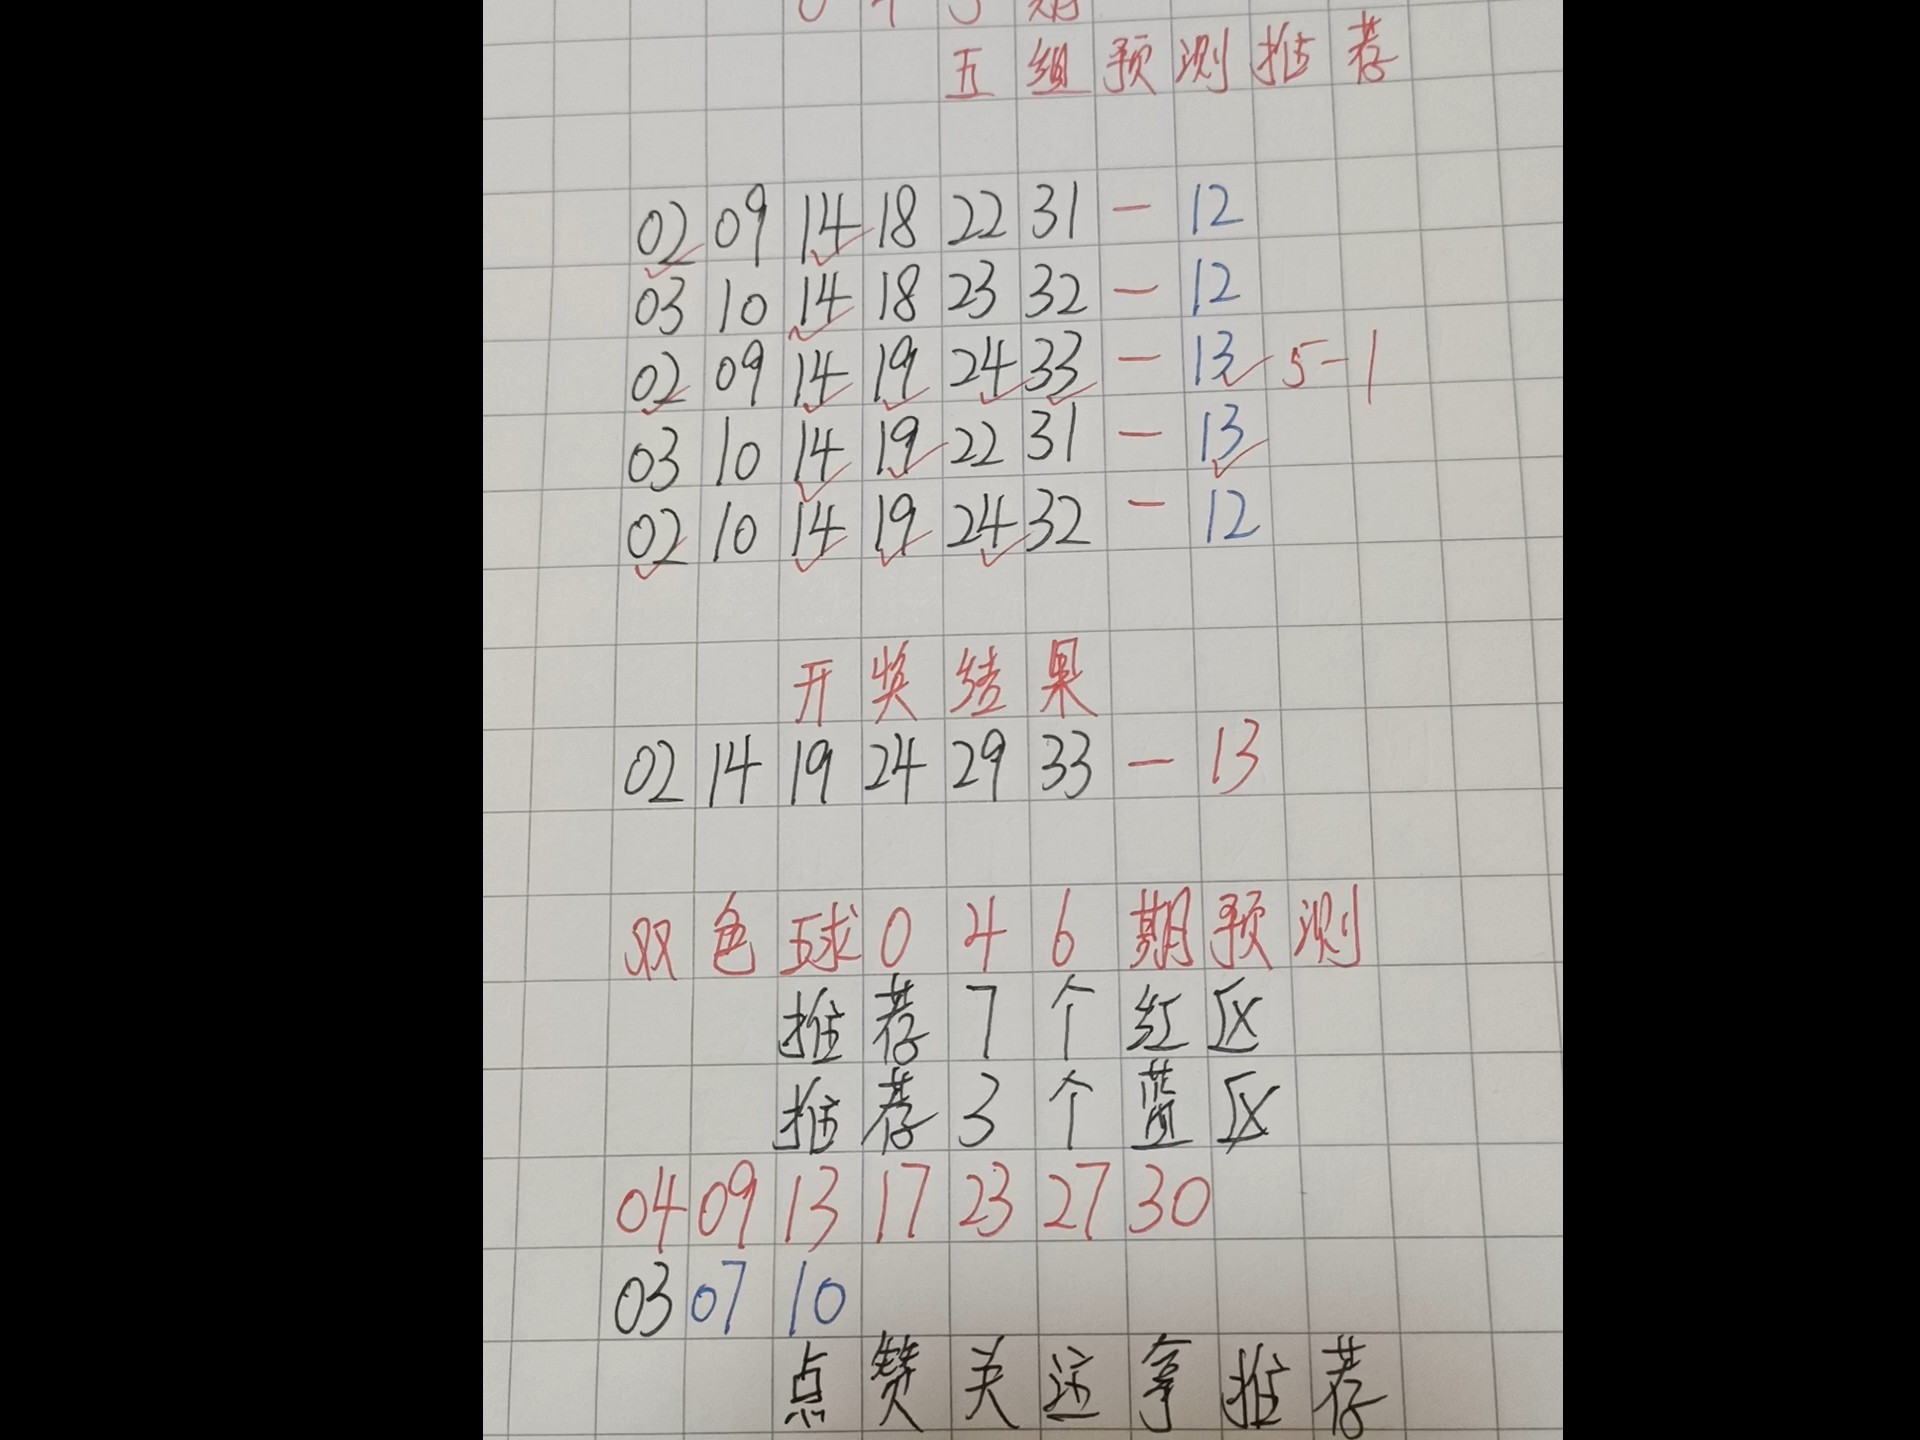 五组预测推荐
02 09 14 18 22 31 — 12
03 10 14 18 23 32 — 12
02 09 14 19 24 33 — 13 5-1
03 10 14 19 22 31 — 13
02 10 14 19 24 32 — 12
开奖结果
02 14 19 24 29 33 — 13
双色球046期预测
推荐7个红区
推荐3个蓝区
04 09 13 17 23 27 30
03 07 10
点赞关注拿推荐